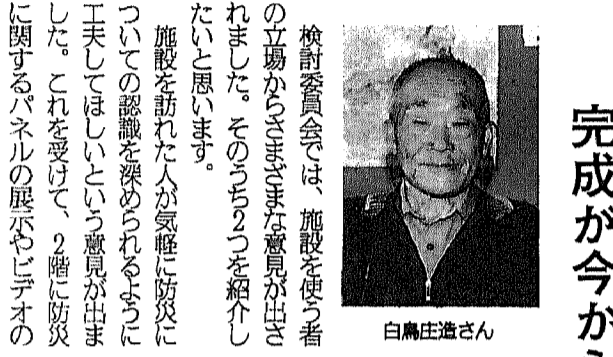 完成が今か
白鳥庄造さん
検討委員会では、施設を使う者
の立場からさまざまな意見が出さ
れました。そのうち2つを紹介し
たいと思います。
施設を訪れた人が気軽に防災に
ついての認識を深められるように
工夫してほしいという意見が出ま
した。これを受けて、2階に防災
に関するパネルの展示やビデオの